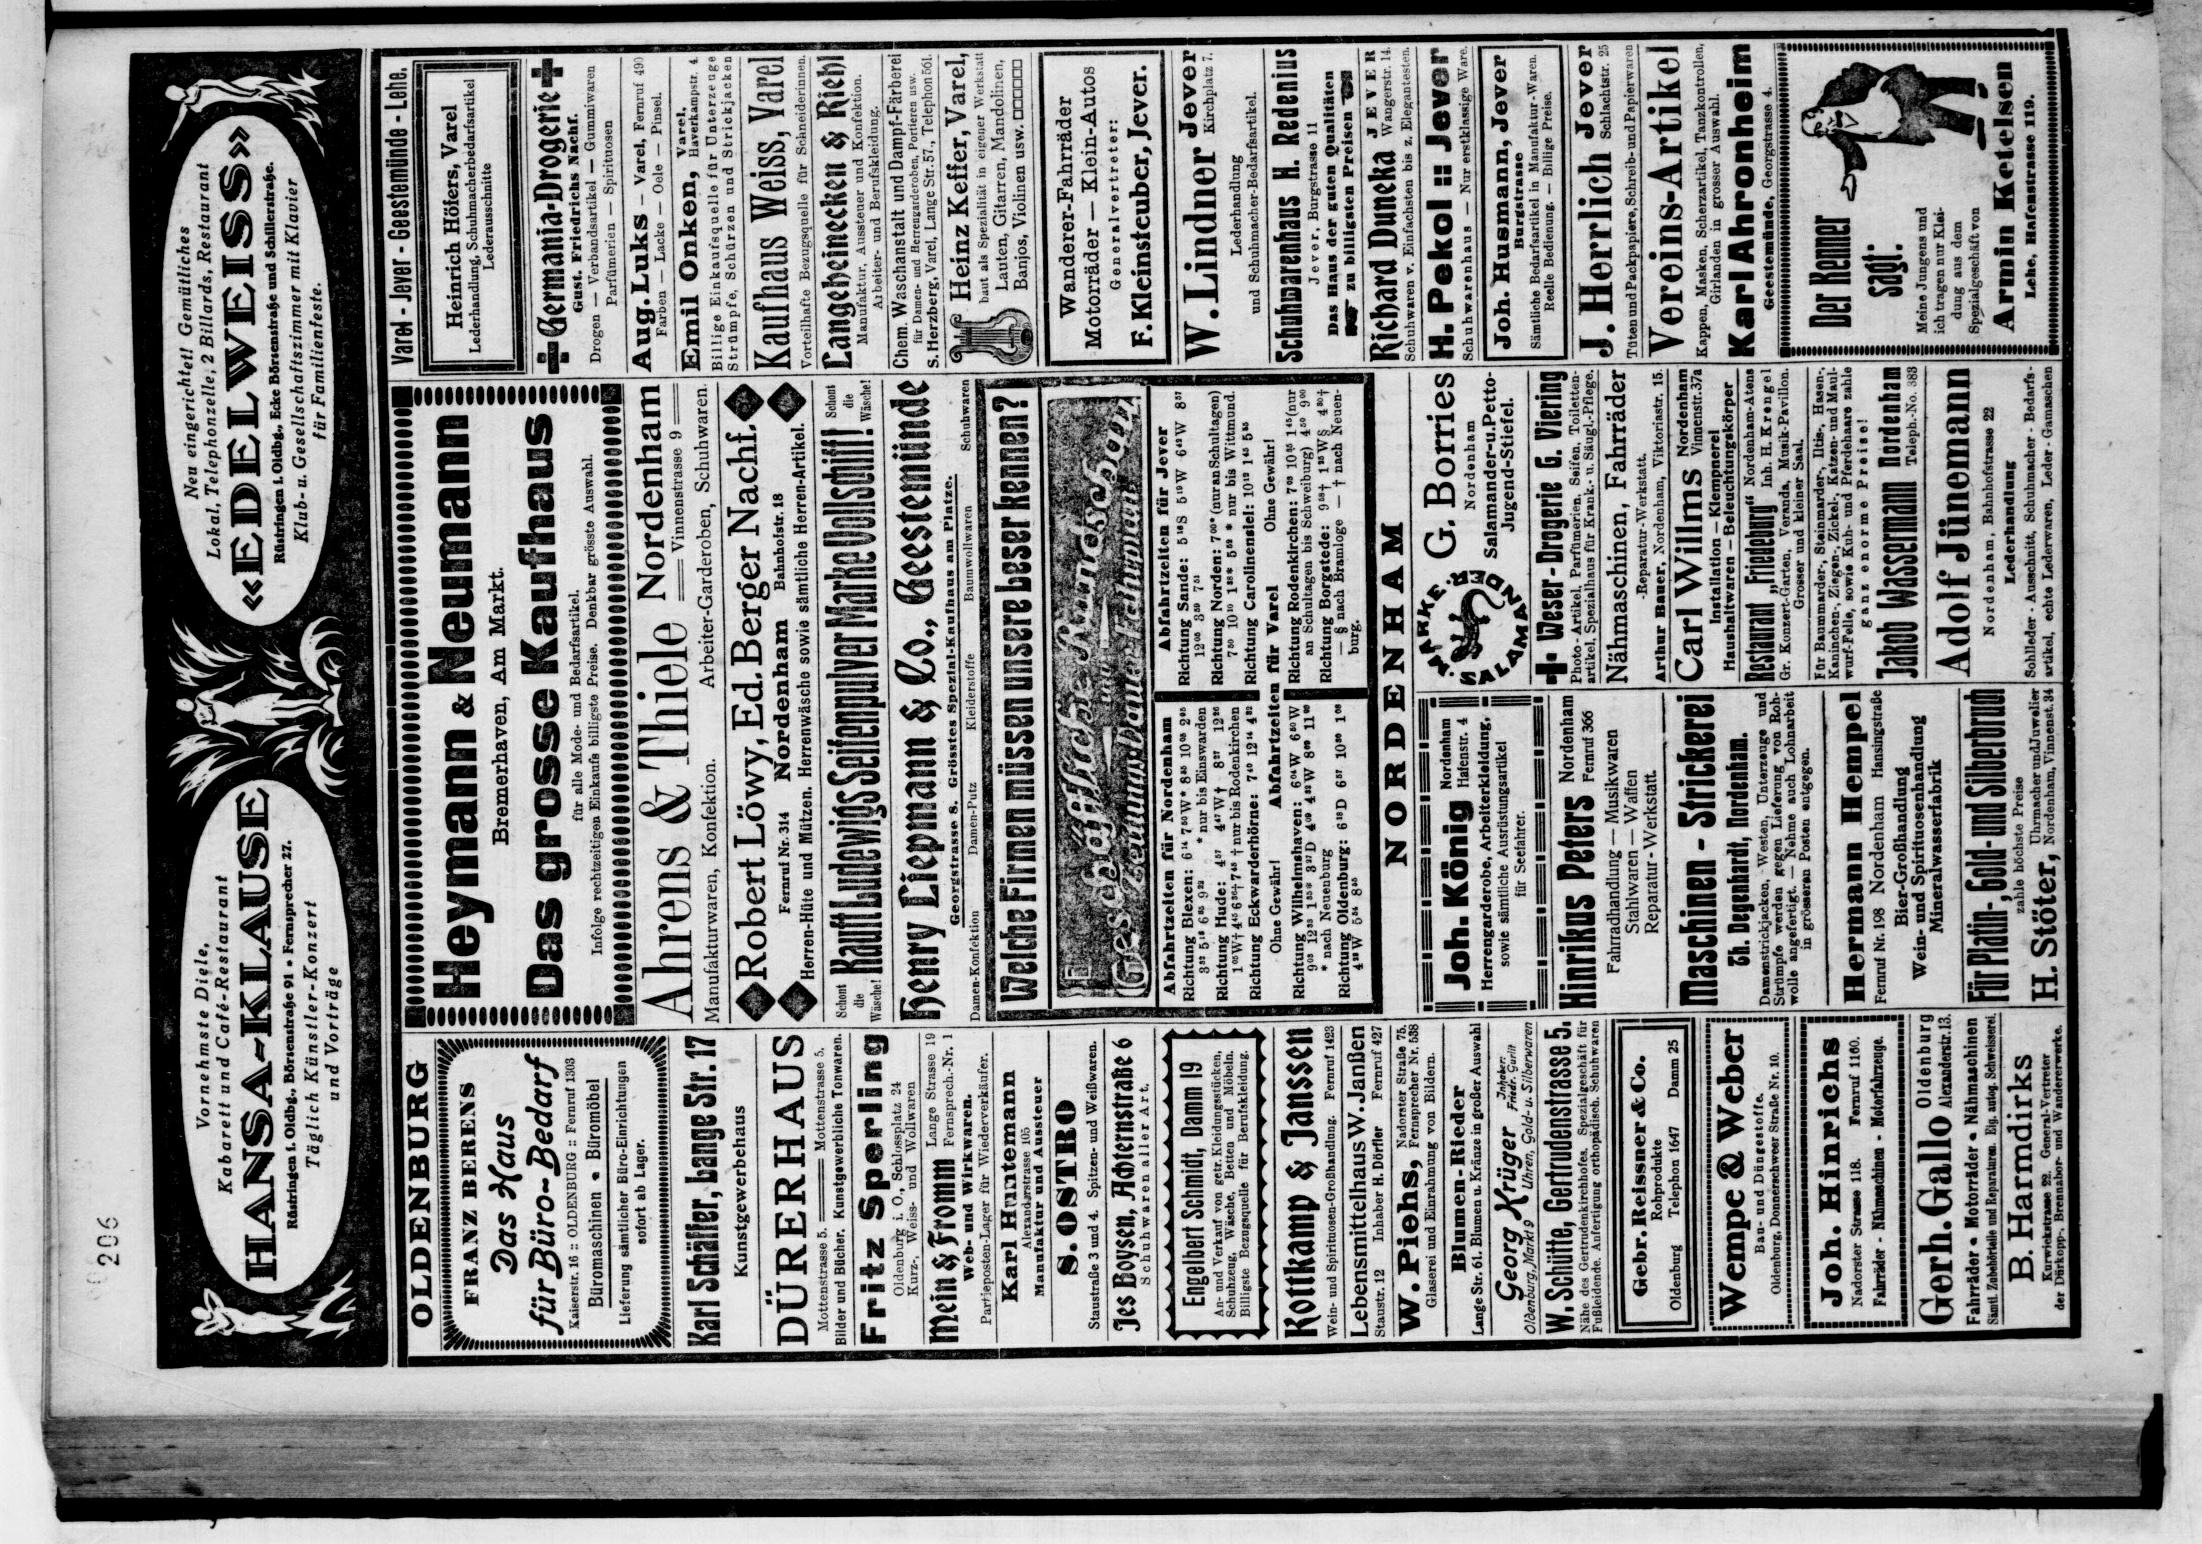 206
Vornehmste Diele,
Kabarett und Café-Restaurant
HANSA-KLAUSE
Rüstringen i. Oldbg., Börsenstraße 91 • Fernsprecher 27.
Täglich Künstler-Konzert
und Vorträge
Neu eingerichtet! Gemütliches
Lokal, Telephonzelle, 2 Billards, Restaurant
«EDELWEISS»
Rüstringen i. Oldbg., Ecke Börsenstraße und Schillerstraße.
Klub- u. Gesellschaftszimmer mit Klavier
für Familienfeste.
OLDENBURG
FRANZ BERENS
Das Haus
für Büro-Bedarf
Kaiserstr. 16 :: OLDENBURG :: Fernruf 1303
Büromaschinen • Büromöbel
Lieferung sämtlicher Büro-Einrichtungen
sofort ab Lager.
Karl Schäfer, Lange Str. 17
Kunstgewerbehaus
DÜRERHAUS
Mottenstrasse 5. Mottenstrasse 5.
Bilder und Bücher. Kunstgewerbliche Tonwaren.
Fritz Sperling
Oldenburg i. O., Schlossplatz 24
Kurz-, Weiss- und Wollwaren
Mein & Fromm Lange Strasse 19
Fernsprech.-Nr. 1
Web- und Wirkwaren.
Partieposten-Lager für Wiederverkäufer.
Karl Huntemann
Alexanderstrasse 105
Manufaktur und Aussteuer
S. OSTRO
Staustraße 3 und 4. Spitzen- und Weißwaren.
Jes Boysen, Achternstraße 6
Schuhwaren aller Art.
Engelbert Schmidt, Damm 19
An- und Verkauf von getr. Kleidungsstücken,
Schuhzeug, Wäsche, Betten und Möbeln.
Billigste Bezugsquelle für Berufskleidung.
Kottkamp & Janssen
Wein- und Spirituosen-Großhandlung. Fernruf 1423
Lebensmittelhaus W. Janßen
Staustr. 12 Inhaber H. Dörfler Fernruf 427
W. Piehs, Nadorster Straße 75.
Fernsprecher Nr. 538
Glaserei und Einrahmung von Bildern.
Blumen-Rieder
Lange Str. 61. Blumen u. Kränze in großer Auswahl
Georg Krüger Inhaber:
Friedr. Gurlit
Oldenburg, Markt 9 Uhren, Gold- u. Silberwaren
W. Schütte, Gertrudenstrasse 5.
Nähe des Gertrudenkirchhofes. Spezialgeschäft für
Fußleidende. Anfertigung orthopädisch. Schuhwaren
Gebr. Reissner & Co.
Rohprodukte
Oldenburg Telephon 1647 Damm 25
Wempe & Weber
Bau- und Düngestoffe.
Oldenburg, Donnerschweer Straße Nr. 10.
Joh. Hinrichs
Nadorster Strasse 118. Fernruf 1160.
Fahrräder - Nähmaschinen - Motorfahrzeuge.
Gerh. Gallo Oldenburg
Alexanderstr. 13.
Fahrräder • Motorräder • Nähmaschinen
Sämtl. Zubehörteile und Reparaturen. Eig. autog. Schweisserei
B. Harmdirks
Kurwickstrasse 22. General-Vertreter
der Dürkopp-, Brennabor- und Wandererwerke.
Heymann & Neumann
Bremerhaven, Am Markt.
Das grosse Kaufhaus
für alle Mode- und Bedarfsartikel.
Infolge rechtzeitigen Einkaufs billigste Preise. Denkbar grösste Auswahl.
Ahrens & Thiele Nordenham
Vinnenstrasse 9
Manufakturwaren, Konfektion. Arbeiter-Garderoben, Schuhwaren.
Robert Löwy, Ed. Berger Nachf.
Fernruf Nr. 314 Nordenham Bahnhofstr. 18
Herren-Hüte und Mützen. Herrenwäsche sowie sämtliche Herren-Artikel.
Schont die Wäsche! Kauft Ludewigs Seifenpulver Marke Vollschiff! Schont die Wäsche!
Henry Liepmann & Co., Geestemünde
Georgstrasse 8. Grösstes Spezial-Kaufhaus am Platze.
Damen-Konfektion Damen-Putz Kleiderstoffe Baumwollwaren Schuhwaren
Welche Firmen müssen unsere Leser kennen?
Geschäftliche Rundschau
und
Eisenbahnfahrplan
Abfahrtzeiten für Nordenham
Richtung Blexen:
* nur bis Einswarden
Richtung Hude:
† nur bis Rodenkirchen
Richtung Eckwarderhörne:
Ohne Gewähr! Abfahrtzeiten für Varel Ohne Gewähr!
Richtung Wilhelmshaven:
* nach Neuenburg
Richtung Oldenburg:
Abfahrtzeiten für Jever
Richtung Sande:
Richtung Norden: (nur an Schultagen)
* nur bis Wittmund.
Richtung Carolinensiel:
Richtung Rodenkirchen: (nur
an Schultagen bis Schweiburg)
Richtung Borgstede:
— § nach Bramloge — † nach Neuen-
burg.
NORDENHAM
Joh. König Nordenham
Hafenstr. 4
Herrengarderobe, Arbeiterkleidung,
sowie sämtliche Ausrüstungsartikel
für Seefahrer.
Hinrikus Peters Nordenham
Fernruf 366
Fahrradhandlung — Musikwaren
Stahlwaren — Waffen
Reparatur-Werkstatt.
Maschinen-Strickerei
Th. Degenhardt, Nordenham.
Damenstrickjacken, Westen, Unterzeuge und
Strümpfe werden gegen Lieferung von Roh-
wolle angefertigt. — Nehme auch Lohnarbeit
in grösseren Posten entgegen.
Hermann Hempel
Fernruf Nr. 198 Nordenham Hansingstraße
Bier-Großhandlung
Wein- und Spirituosenhandlung
Mineralwasserfabrik
Für Platin-, Gold- und Silberbruch
zahle höchste Preise
H. Stöter, Uhrmacher und Juwelier
Nordenham, Vinnenst. 34
MARKE
SALAMANDER
G. Borries
Nordenham
Salamander- u. Petto-
Jugend-Stiefel.
Weser-Drogerie G. Viering
Photo-Artikel, Parfümerien, Seifen, Toiletten-
artikel, Spezialhaus für Krank.- u. Säugl.-Pflege.
Nähmaschinen, Fahrräder
-Reparatur-Werkstatt.
Arthur Bauer, Nordenham, Viktoriastr. 15.
Carl Willms Nordenham
Vinnenstr. 37a
Installation — Klempnerei
Haushaltwaren — Beleuchtungskörper
Restaurant „Friedeburg“ Nordenham-Atens
Inh. H. Krengel
Gr. Konzert-Garten, Veranda, Musik-Pavillon.
Grosser und kleiner Saal.
Für Baummarder-, Steinmarder-, Iltis-, Hasen-,
Kaninchen-, Ziegen-, Zickel-, Katzen- und Maul-
wurf-Felle, sowie Kuh- und Pferdehaare zahle
ganz enorme Preise!
Jakob Wassermann Nordenham
Teleph.-No. 383
Adolf Jünemann
Nordenham, Bahnhofstrasse 22
Lederhandlung
Sohlleder-Ausschnitt, Schuhmacher-Bedarfs-
artikel, echte Lederwaren, Leder-Gamaschen
Varel - Jever - Geestemünde - Lehe.
Heinrich Höfers, Varel
Lederhandlung, Schuhmacherbedarfsartikel
Lederausschnitte
Germania-Drogerie
Gust. Friedrichs Nachf.
Drogen — Verbandsartikel — Gummiwaren
Parfümerien — Spirituosen
Aug. Luks – Varel, Fernruf 490
Farben — Lacke — Oele — Pinsel.
Emil Onken, Varel,
Haverkampstr. 4
Billige Einkaufsquelle für Unterzeuge
Strümpfe, Schürzen und Strickjacken
Kaufhaus Weiss, Varel
Vorteilhafte Bezugsquelle für Schneiderinnen.
Langeheinecken & Riehl
Manufaktur, Aussteuer und Konfektion.
Arbeiter- und Berufskleidung.
Chem. Waschanstalt und Dampf-Färberei
für Damen- und Herrengarderoben, Portieren usw.
S. Herzberg, Varel, Lange Str. 57., Telephon 501.
Heinz Keffer, Varel,
baut als Spezialität in eigener Werkstatt
Lauten, Gitarren, Mandolinen,
Banjos, Violinen usw.
Wanderer-Fahrräder
Motorräder — Klein-Autos
Generalvertreter:
F. Kleinsteuber, Jever.
W. Lindner Jever
Kirchplatz 7.
Lederhandlung
und Schuhmacher-Bedarfsartikel.
Schuhwarenhaus H. Redenius
Jever, Burgstrasse 11
Das Haus der guten Qualitäten
zu billigsten Preisen
Richard Duneka JEVER
Wangerstr. 14.
Schuhwaren v. Einfachsten bis z. Elegantesten.
H. Pekol :: Jever
Schuhwarenhaus — Nur erstklassige Ware.
Joh. Husmann, Jever
Burgstrasse
Sämtliche Bedarfsartikel in Manufaktur-Waren.
Reelle Bedienung. — Billige Preise.
J. Herrlich Jever
Schlachtstr. 25
Tüten und Packpapiere, Schreib- und Papierwaren
Vereins-Artikel
Kappen, Masken, Scherzartikel, Tanzkontrollen,
Girlanden in grosser Auswahl.
Karl Ahronheim
Geestemünde, Georgstrasse 4.
Der Kenner
sagt.
Meine Jungens und
ich tragen nur Klei-
dung aus dem
Spezialgeschäft von
Armin Ketelsen
Lehe, Hafenstrasse 119.